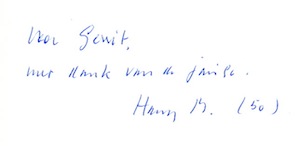 Voor Gerrit,
met dank van de jarige.
Harry M. (50)